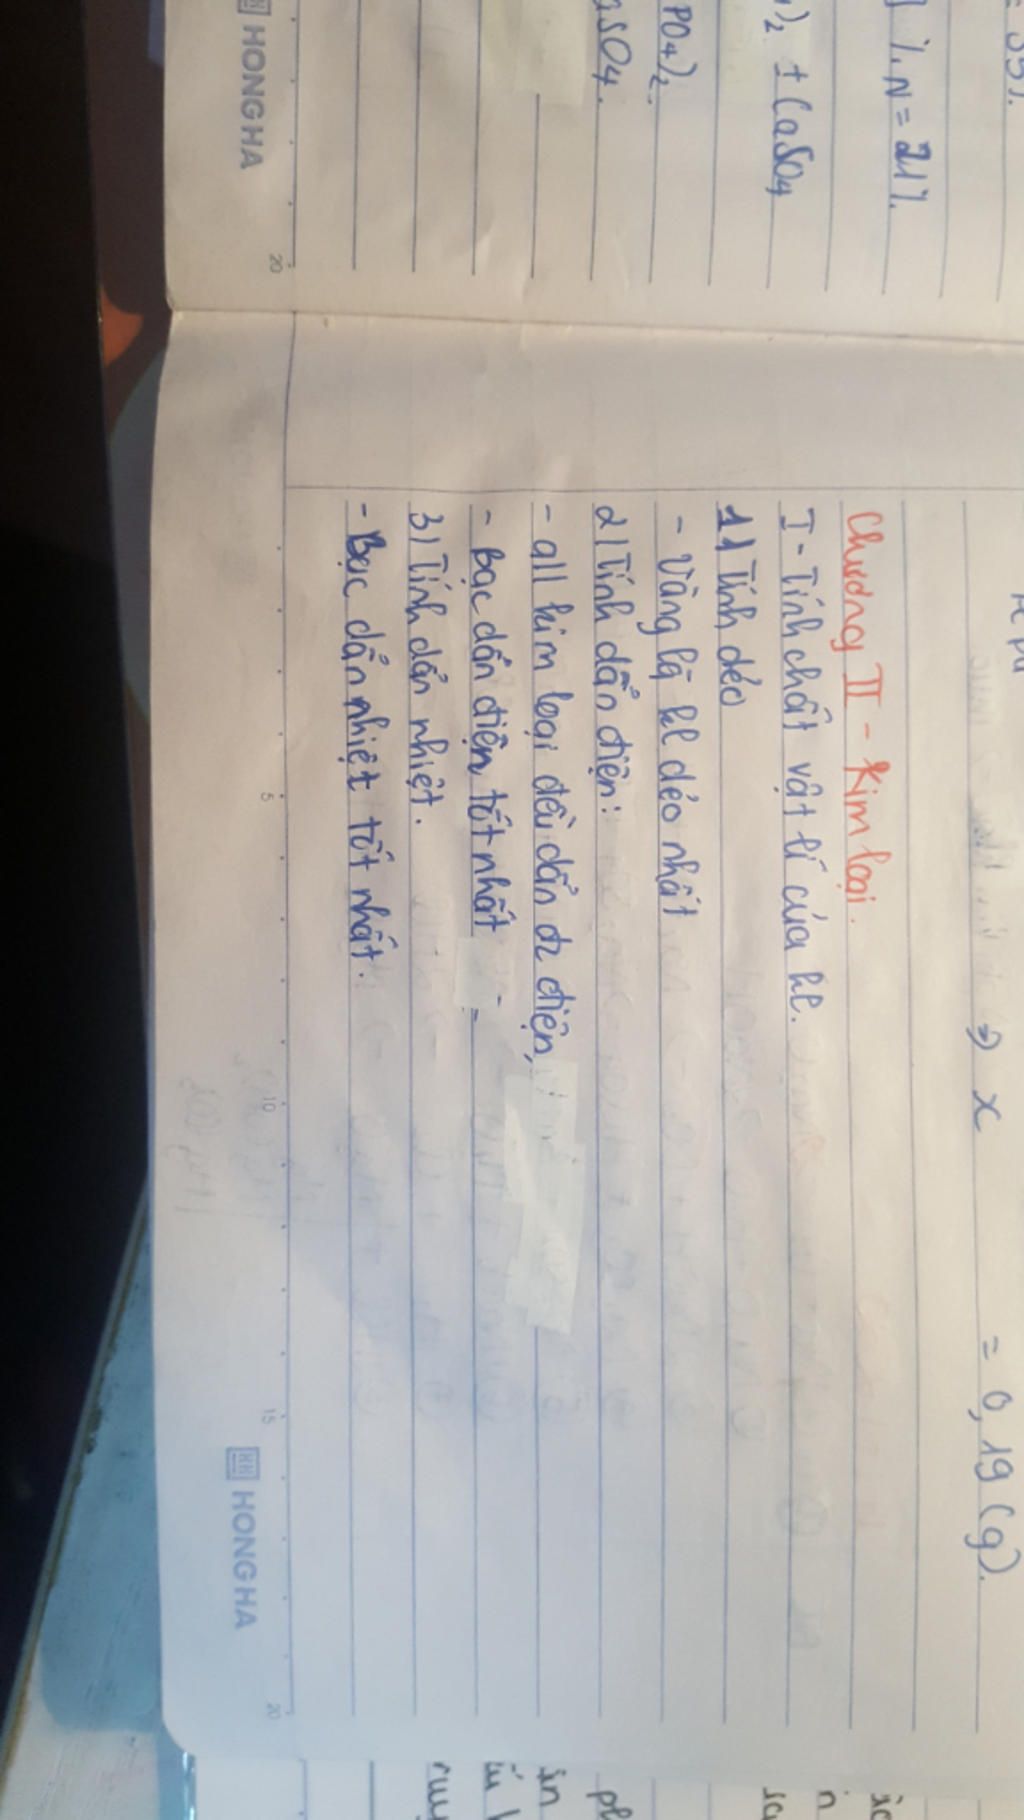 35%.
% N = 21%.
)₂ + CaSO4
PO4)₂.
aSO4.
HONG HA
20
⇒ x = 0,19 (g).
Chương II - Kim loại.
I - Tính chất vật lí của kl.
1) Tính dẻo
- Vàng là kl dẻo nhất
2) Tính dẫn điện:
- all kim loại đều dẫn đz điện,
- Bạc dẫn điện tốt nhất
3) Tính dẫn nhiệt.
- Bạc dẫn nhiệt tốt nhất.
5 10 15 20
HONG HA